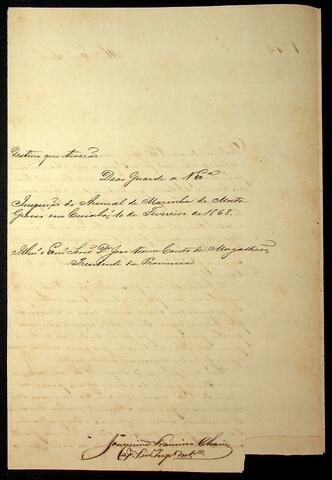 destino que tiverão
Deos Guarde a V Exª
Inspecção do Arsenal de Marinha de Matto
Grosso em Cuiabá, 10 de Fevereiro de 1868.
Illmº e Exmº Senr Dr José Vieira Couto de Magalhães,
Presidente da Provincia
Joaquim Francisco